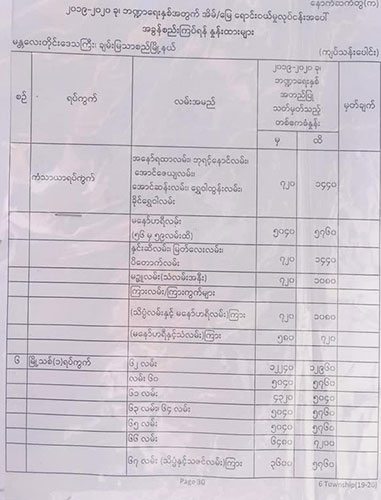 နောက်ဆက်တွဲ(က)
၂၀၁၉-၂၀၂၀ ခု ဘဏ္ဍာရေးနှစ်အတွက် အိမ်/မြေ ရောင်းဝယ်မှုလုပ်ငန်းအပေါ်
အခွန်စည်းကြပ်ရန် နှုန်းထားများ
မန္တလေးတိုင်းဒေသကြီး၊ ချမ်းမြသာစည်မြို့နယ် (ကျပ်သန်းပေါင်း)
စဉ် ရပ်ကွက် လမ်းအမည် ၂၀၁၉-၂၀၂၀ ခု ဘဏ္ဍာရေးနှစ် အတည်ပြု သတ်မှတ်သည့် တစ်ဧကနှုန်း မှတ်ချက်
မှ ထိ
ကံသာယာရပ်ကွက် အနော်ရထာလမ်း၊ ဘုရင့်နောင်လမ်း၊
အောင်ဇေယျလမ်း၊
အောင်ဆန်းလမ်း၊ ရွှေဝါထွန်းလမ်း၊
ခိုင်ရွှေဝါလမ်း ၇၂၀ ၁၄၄၀
မနော်ဟရီလမ်း
(၅၆ မှ ၅၉လမ်းထိ) ၅၀၄၀ ၅၇၆၀
နှင်းဆီလမ်း၊ မြတ်လေးလမ်း၊
ပိတောက်လမ်း ၇၂၀ ၁၄၄၀
မဥ္ဇူလမ်း(သံလမ်းအနီး) ၇၂၀ ၁၀၈၀
ကြားလမ်း/ကြားကွက်များ
(သိပ္ပံလမ်းနှင့် မနော်ဟရီလမ်း)ကြား ၇၂၀ ၁၀၈၀
(မနော်ဟရီနှင့်သံလမ်း)ကြား ၅၈၀ ၇၂၀
၆ မြို့သစ်(၁)ရပ်ကွက် ၆၂ လမ်း ၁၂၂၄၀ ၁၂၉၆၀
လမ်း ၆၀ ၅၀၄၀ ၅၇၆၀
၆၁ လမ်း ၄၃၂၀ ၅၀၄၀
၆၃ လမ်း/၆၄ လမ်း ၅၀၄၀ ၅၇၆၀
၆၅ လမ်း ၅၀၄၀ ၅၇၆၀
၆၆ လမ်း ၆၄၈၀ ၇၂၀၀
၆၇ လမ်း (သိပ္ပံနှင့်သဇင်လမ်း)ကြား ၃၆၀၀ ၅၇၆၀
Page 30
6 Township(19-20)